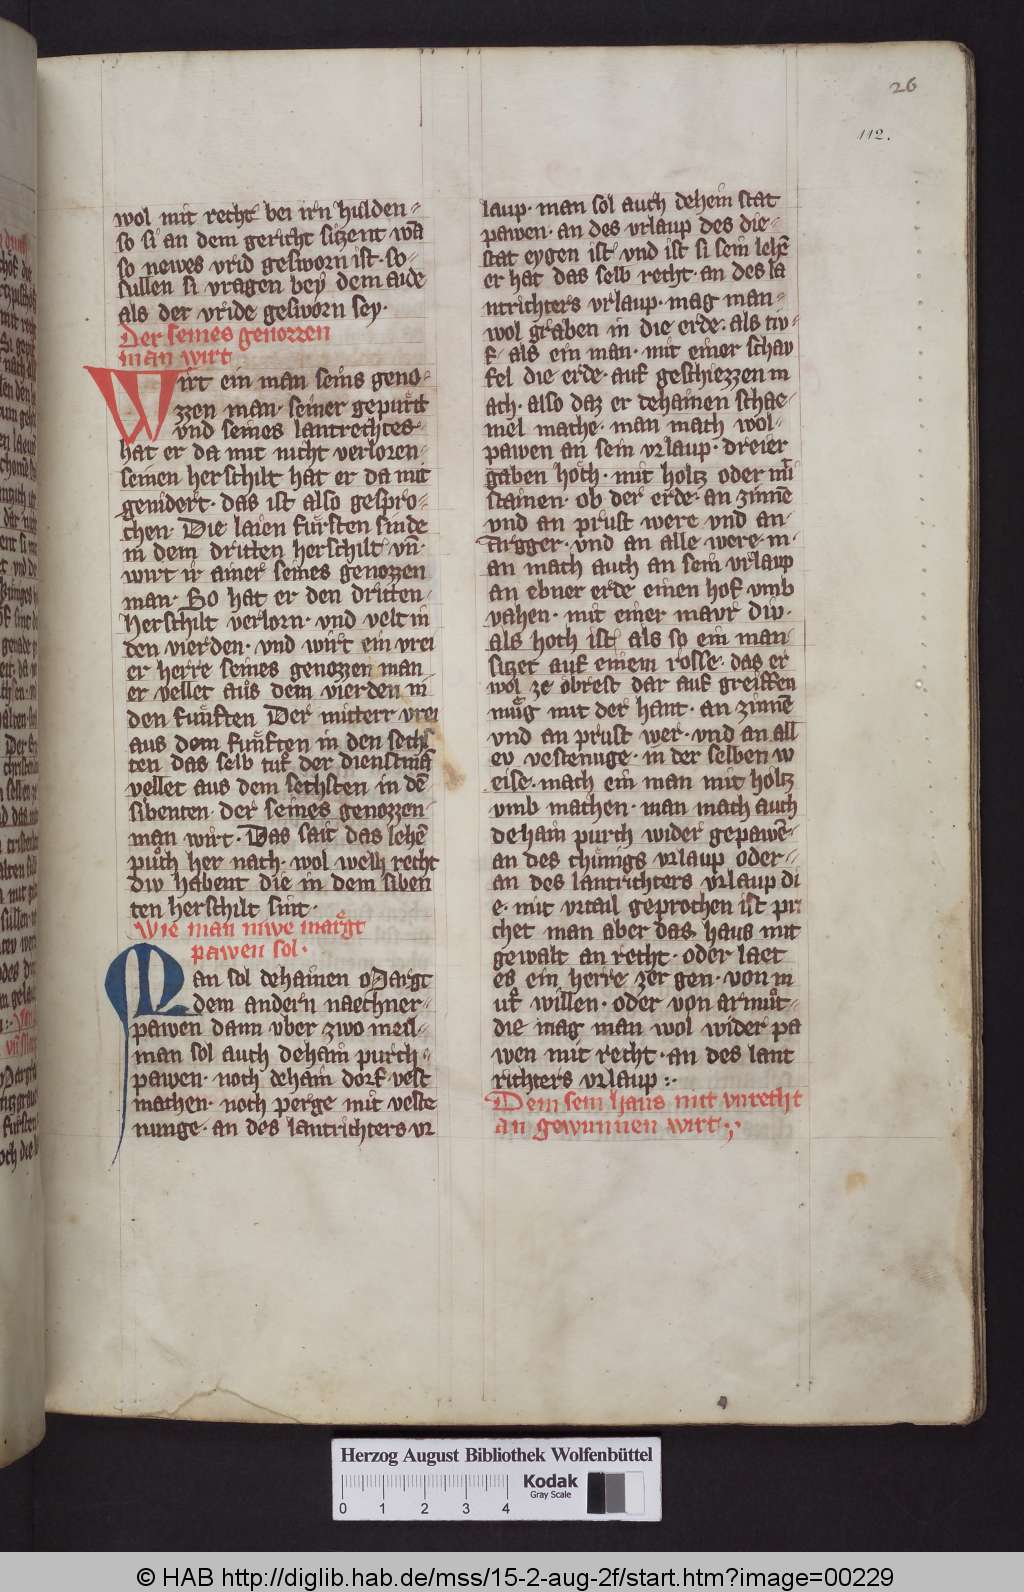 26
112.
wol mit recht bei irn hulden
so si an dem gericht sitzent wā
so newes vrid gesworn ist · so
sullen si vragen bey dem aide
als der vride gesworn sey ·
Der seines genozzen
man wirt
Wirt ein man seins geno
zzen man · seiner gepurtt
vnd seines lantrechtes
hat er da mit nicht verloren
seinen herschilt hat er da mit
genidert · das ist also gespro
chen · Die laien fursten sinde
in dem dritten herschilt vn̄ ·
wirt ir ainer seines genozzen
man · So hat er den dritten
herschilt verlorn · vnd velt in
den vierden · vnd wirt ein vrei
er herre seines genozzen man
er vellet aus dem vierden in
den funften Der mitterr vrei
aus dem funften in den sechs
ten das selb tut der dienstmā
vellet aus dem sechsten in dē
sibenten · der seines genozzen
man wirt · Das sait das lehē
puch her nach · wol welh recht
div habent die in dem siben
ten herschilt sint ·
Wie man niwe margt
pawen sol ·
Man sol dehainen Margt
dem andern naechner
pawen dann vber zwo meil
man sol auch dehain purch
pawen · noch dehain dorf vest
machen · noch perge mit veste
nunge · an des lantrichters vr
laup · man sol auch dehein stat
pawen · an des vrlaup des die
stat eygen ist · vnd ist si sein lehē
er hat das selb recht · an des la
ntrichters vrlaup · mag man
wol graben in die erde · als tiv
f · als ein man · mit einer schav
fel die erde · auf geschiezzen m
ach · also daz er dehainen schae
mel mache · man mach wol
pawen an sein vrlaup · dreier
gaben hoch · mit holtz oder mi
stainen · ob der erde · an zinnē
vnd an prust were vnd an
aergger · vnd an alle were · m
an mach auch an sein vrlaup
an ebner erde einen hof vmb
vahen · mit einer maur div
als hoch ist als so ein man
sitzet auf einem rosse · das er
wol ze obrest dar auf greiffen
mug mit der hant · an zinnē
vnd an prust wer · vnd an all
ev vestenuge · in der selben w
eise · mach ein man mit holtz
vmb machen · man mach auch
dehain purch wider gepawē
an des chunigs vrlaup oder
an des lantrichters vrlaup di
e · mit vrtail geprochen ist pri
chet man aber das haus mit
gewalt an recht · oder laet
es ein herre zer gen · von m
ut willen · oder von armut ·
die mag man wol wider pa
wen mit recht · an des lant
richters vrlaup :·
Dem sein haus mit vnrecht
an gewunnen wirt ·
Herzog August Bibliothek Wolfenbüttel
0 1 2 3 4
Kodak
Gray Scale
© HAB http://diglib.hab.de/mss/15-2-aug-2f/start.htm?image=00229